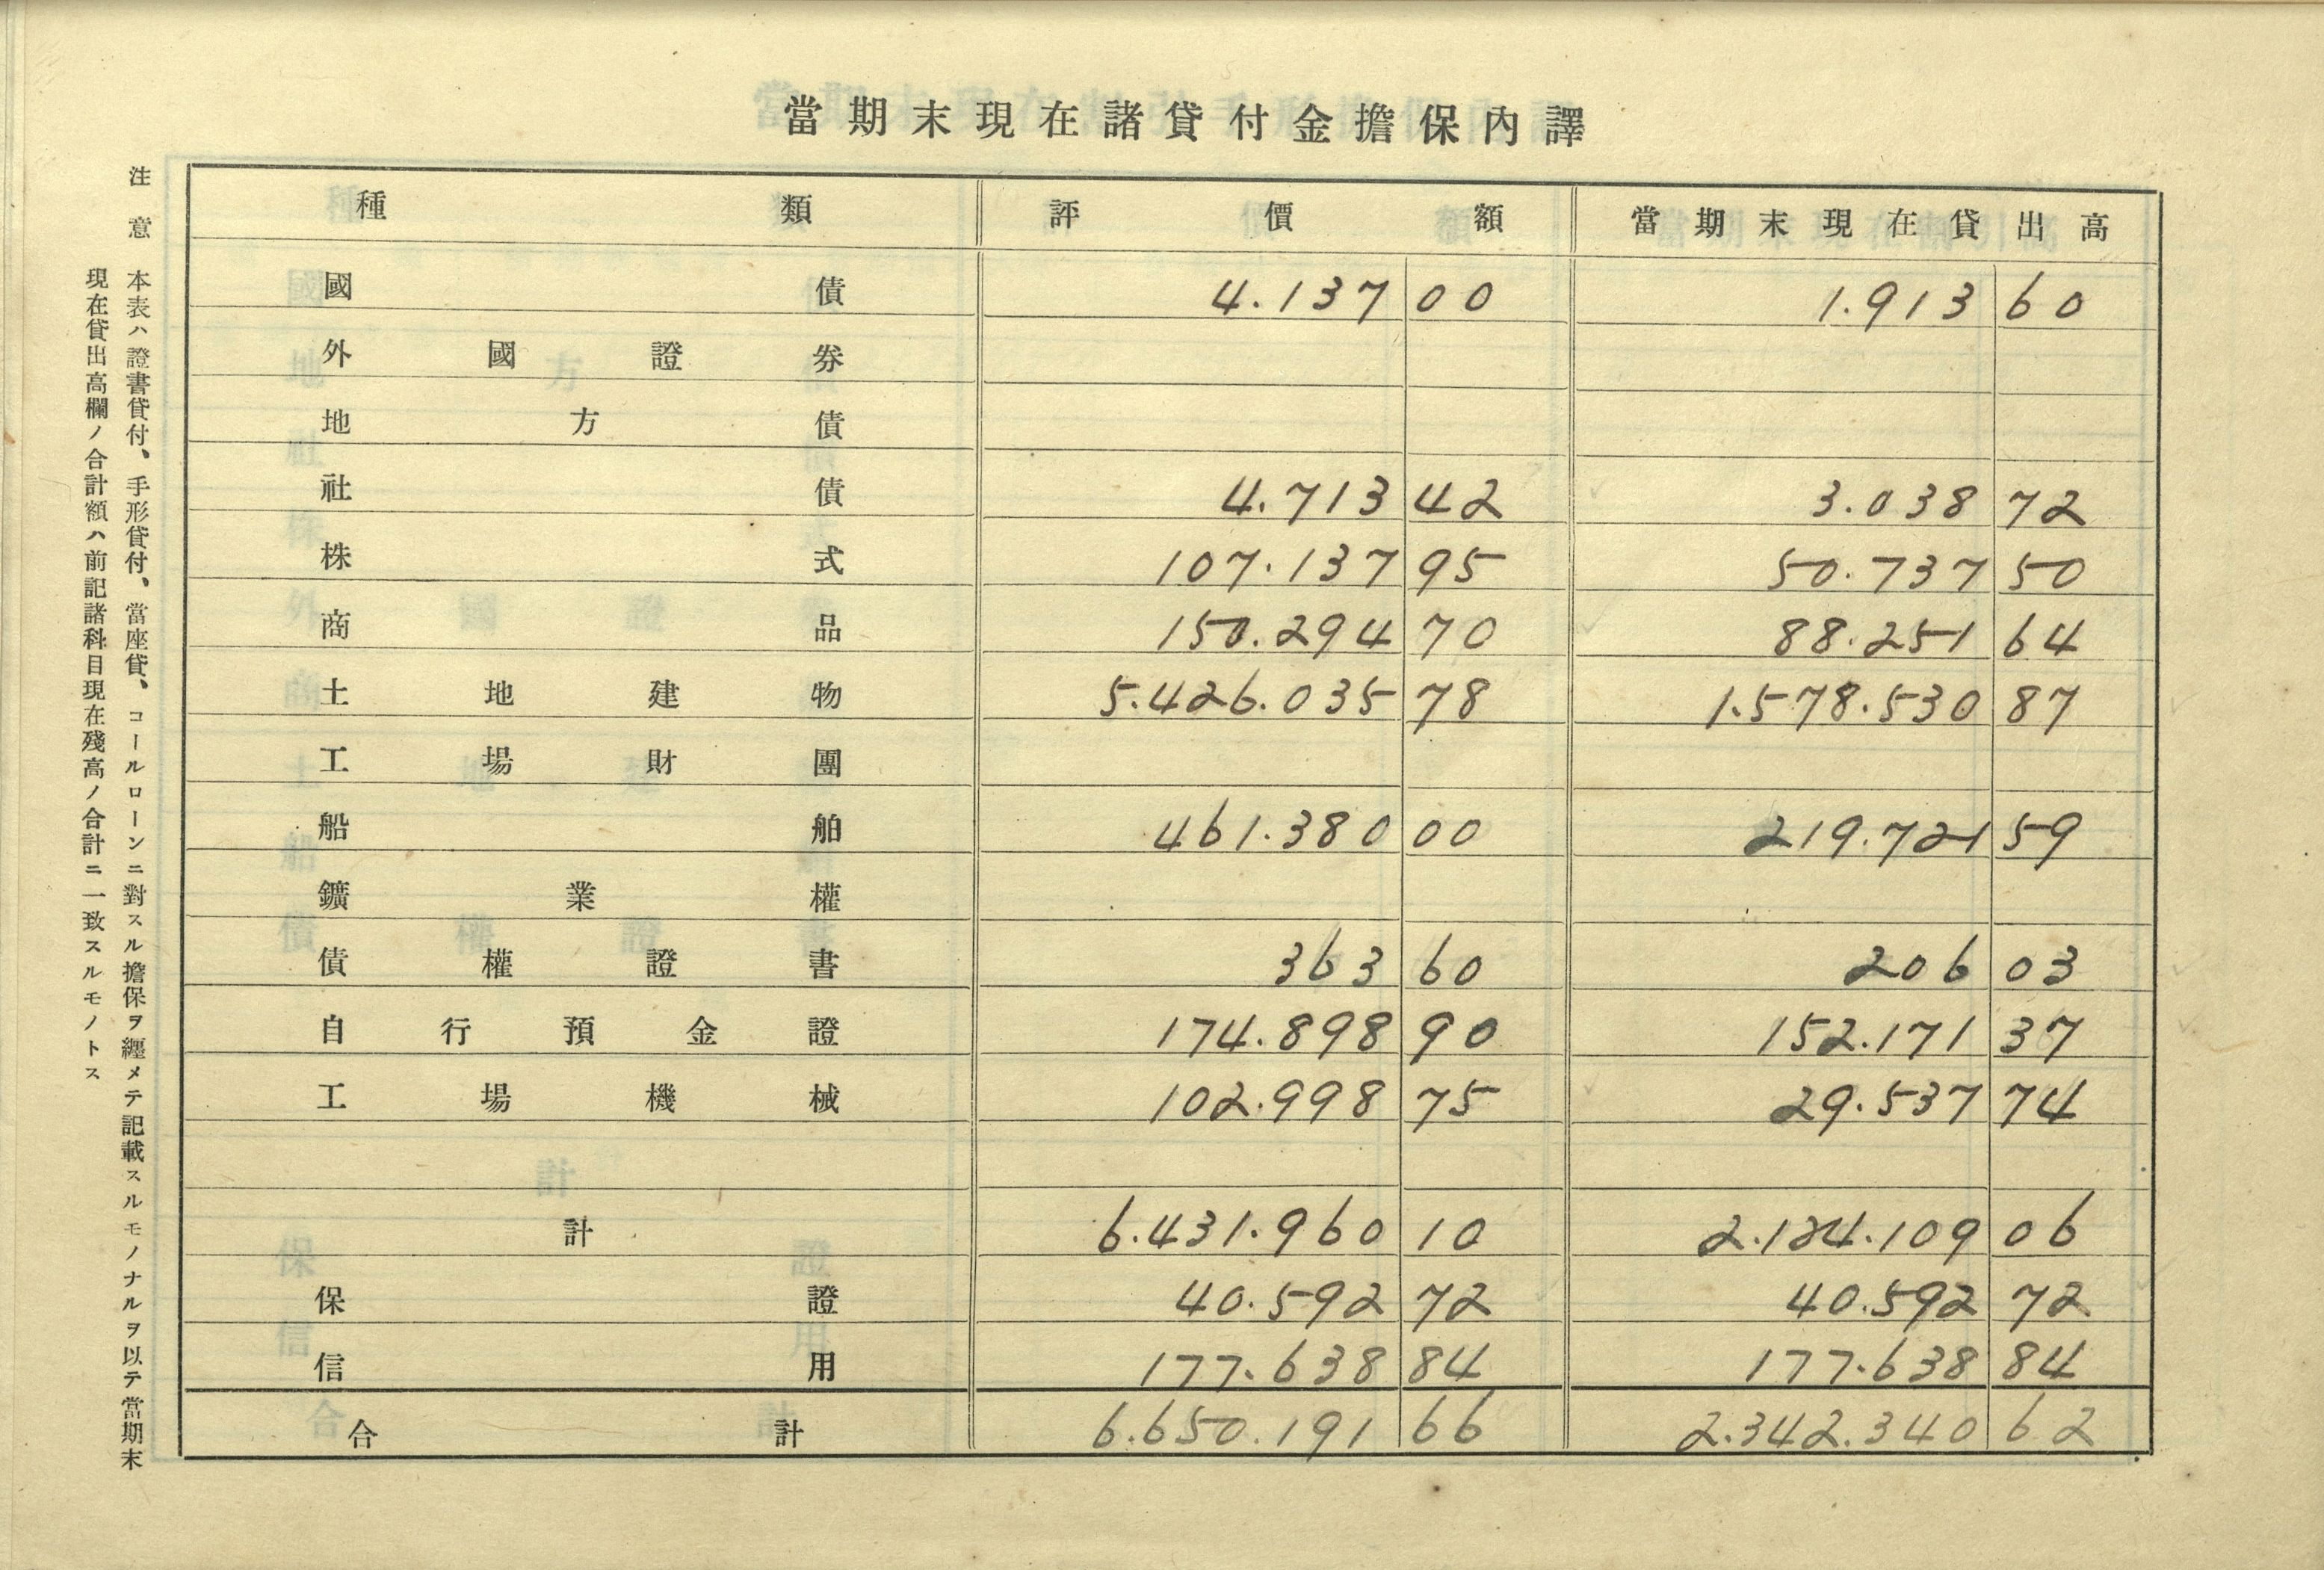 當期末現在諸貸付金擔保內譯
種類 評價額 當期末現在貸出高
國債 4.137 00 1.913 60
外國證券
地方債
社債 4.713 42 3.038 72
株式 107.137 95 50.737 50
商品 150.294 70 88.251 64
土地建物 5.426.035 78 1.578.530 87
工場財團
船舶 461.380 00 219.721 59
鑛業權
債權證書 363 60 206 03
自行預金證 174.898 90 152.171 37
工場機械 102.998 75 29.537 74
計 6.431.960 10 2.124.109 06
保證 40.592 72 40.592 72
信用 177.638 84 177.638 84
合計 6.650.191 66 2.342.340 62
注意 本表ハ證書貸付、手形貸付、當座貸、コールローンニ對スル擔保ヲ纒メテ記載スルモノナルヲ以テ當期末
現在貸出高欄ノ合計額ハ前記諸科目現在殘高ノ合計ニ一致スルモノトス